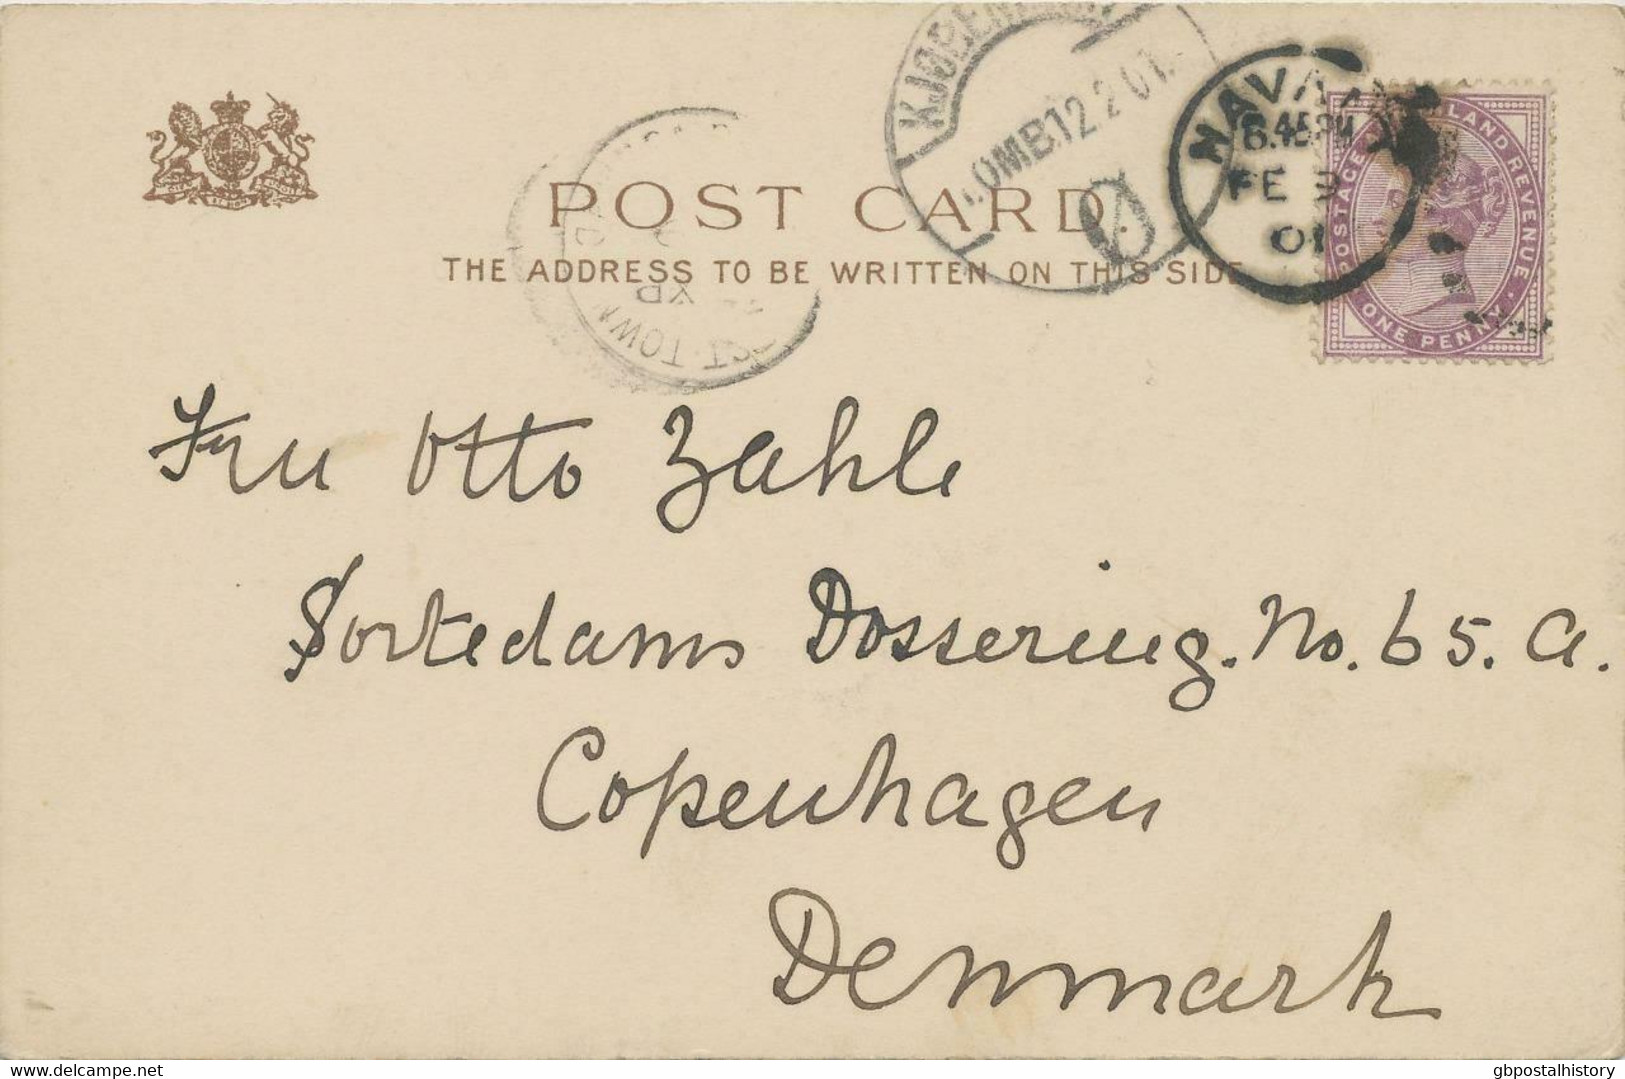 KJØBENHAVN
OMB.12.2.01.
Ø
NAVAN
6.45PM
FE 9
01
POSTAGE AND INLAND REVENUE
ONE PENNY
POST CARD.
THE ADDRESS TO BE WRITTEN ON THIS SIDE
TOWN
XD
Fru Otto Zahle
Sortedams Dossering. No. 65. A.
Copenhagen
Denmark
delcampe.net
gbpostalhistory